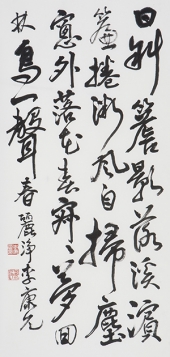 日斜簷影落溪濱
簾捲微風自掃塵
窓外落花寂〻夢回
林鳥一聲春 麗淨李康